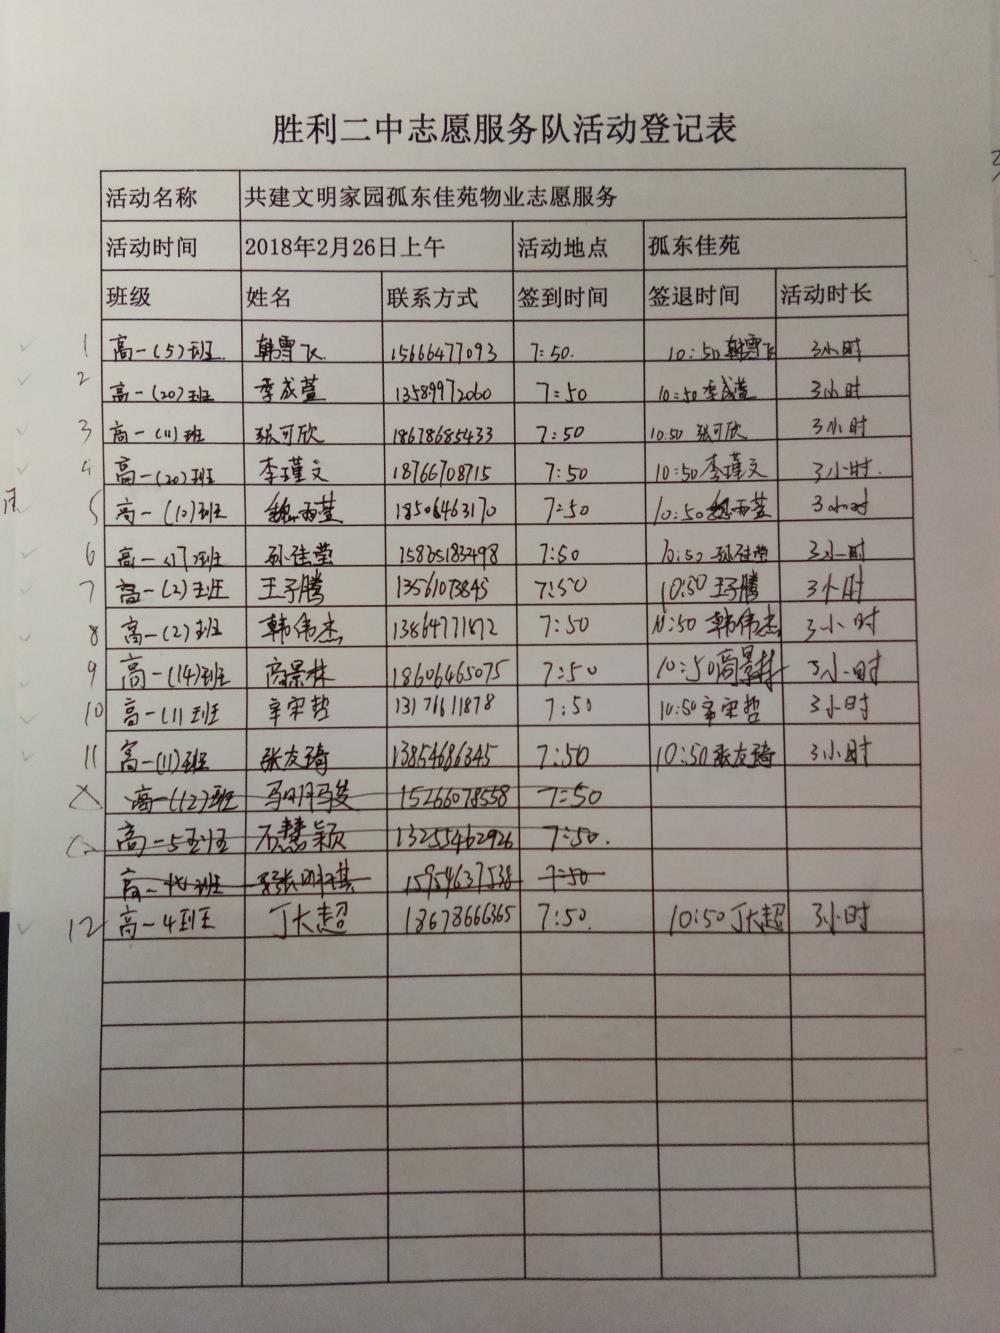 胜利二中志愿服务队活动登记表
活动名称 共建文明家园孤东佳苑物业志愿服务
活动时间 2018年2月26日上午 活动地点 孤东佳苑
班级 姓名 联系方式 签到时间 签退时间 活动时长
1 高一(5)班 韩雪飞 15666477093 7:50. 10:50 韩雪飞 3小时
2 高一(20)班 季成萱 13589972060 7:50 10:50 季成萱 3小时
3 高一(11)班 张可欣 18678685433 7:50 10:50 张可欣 3小时
4 高一(20)班 李瑾文 18766708715 7:50 10:50 李瑾文 3小时.
5 高一(10)班 魏雨萱 18506463170 7:50 10:50 魏雨萱 3小时
6 高一 班 孙佳莹 7:50 10:50 孙佳莹 3小时
7 高一(2)班 王子腾 7:50 10:50 王子腾 3小时
8 高一(2)班 韩伟杰 13864771872 7:50 10:50 韩伟杰 3小时
9 高一(14)班 高景林 18606465075 7:50 10:50 高景林 3小时
10 高一(1)班 辛宋哲 13171611878 7:50 10:50 辛宋哲 3小时
11 高一(11)班 张友琦 13854686345 7:50 10:50 张友琦 3小时
高一(12)班 15266078558 7:50
高一5班 慧颖 13255462926 7:50.
高一 班 15954637538 7:50
12 高一4班 丁大超 18678666365 7:50 10:50 丁大超 3小时